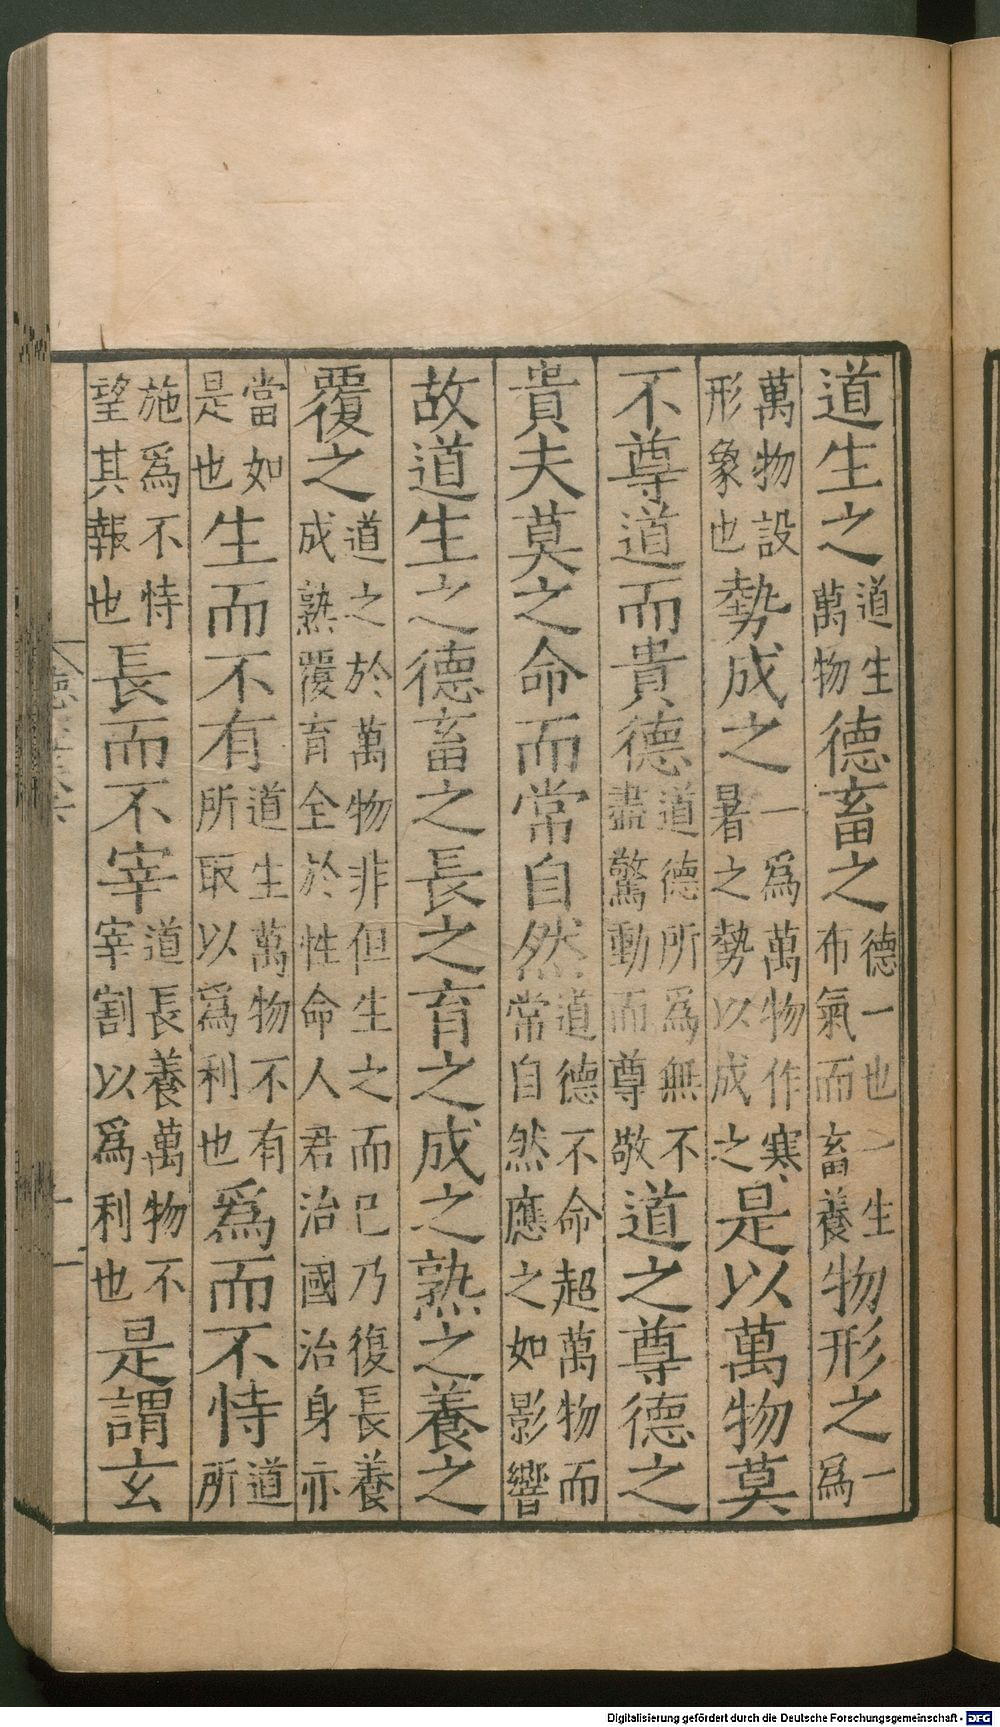 道生之道生萬物德畜之德一也一生布氣而畜養物形之一爲
萬物設形象也勢成之一爲萬物作寒暑之勢以成之是以萬物莫
不尊道而貴德道德所爲無不盡驚動而尊敬道之尊德之
貴夫莫之命而常自然道德不命超萬物而常自然應之如影響
故道生之德畜之長之育之成之熟之養之
覆之道之於萬物非但生之而已乃復長養成熟覆育全於性命人君治國治身亦
當如是也生而不有道生萬物不有所取以爲利也爲而不恃道所
施爲不恃望其報也長而不宰道長養萬物不宰割以爲利也是謂玄
Digitalisierung gefördert durch die Deutsche Forschungsgemeinschaft - DFG